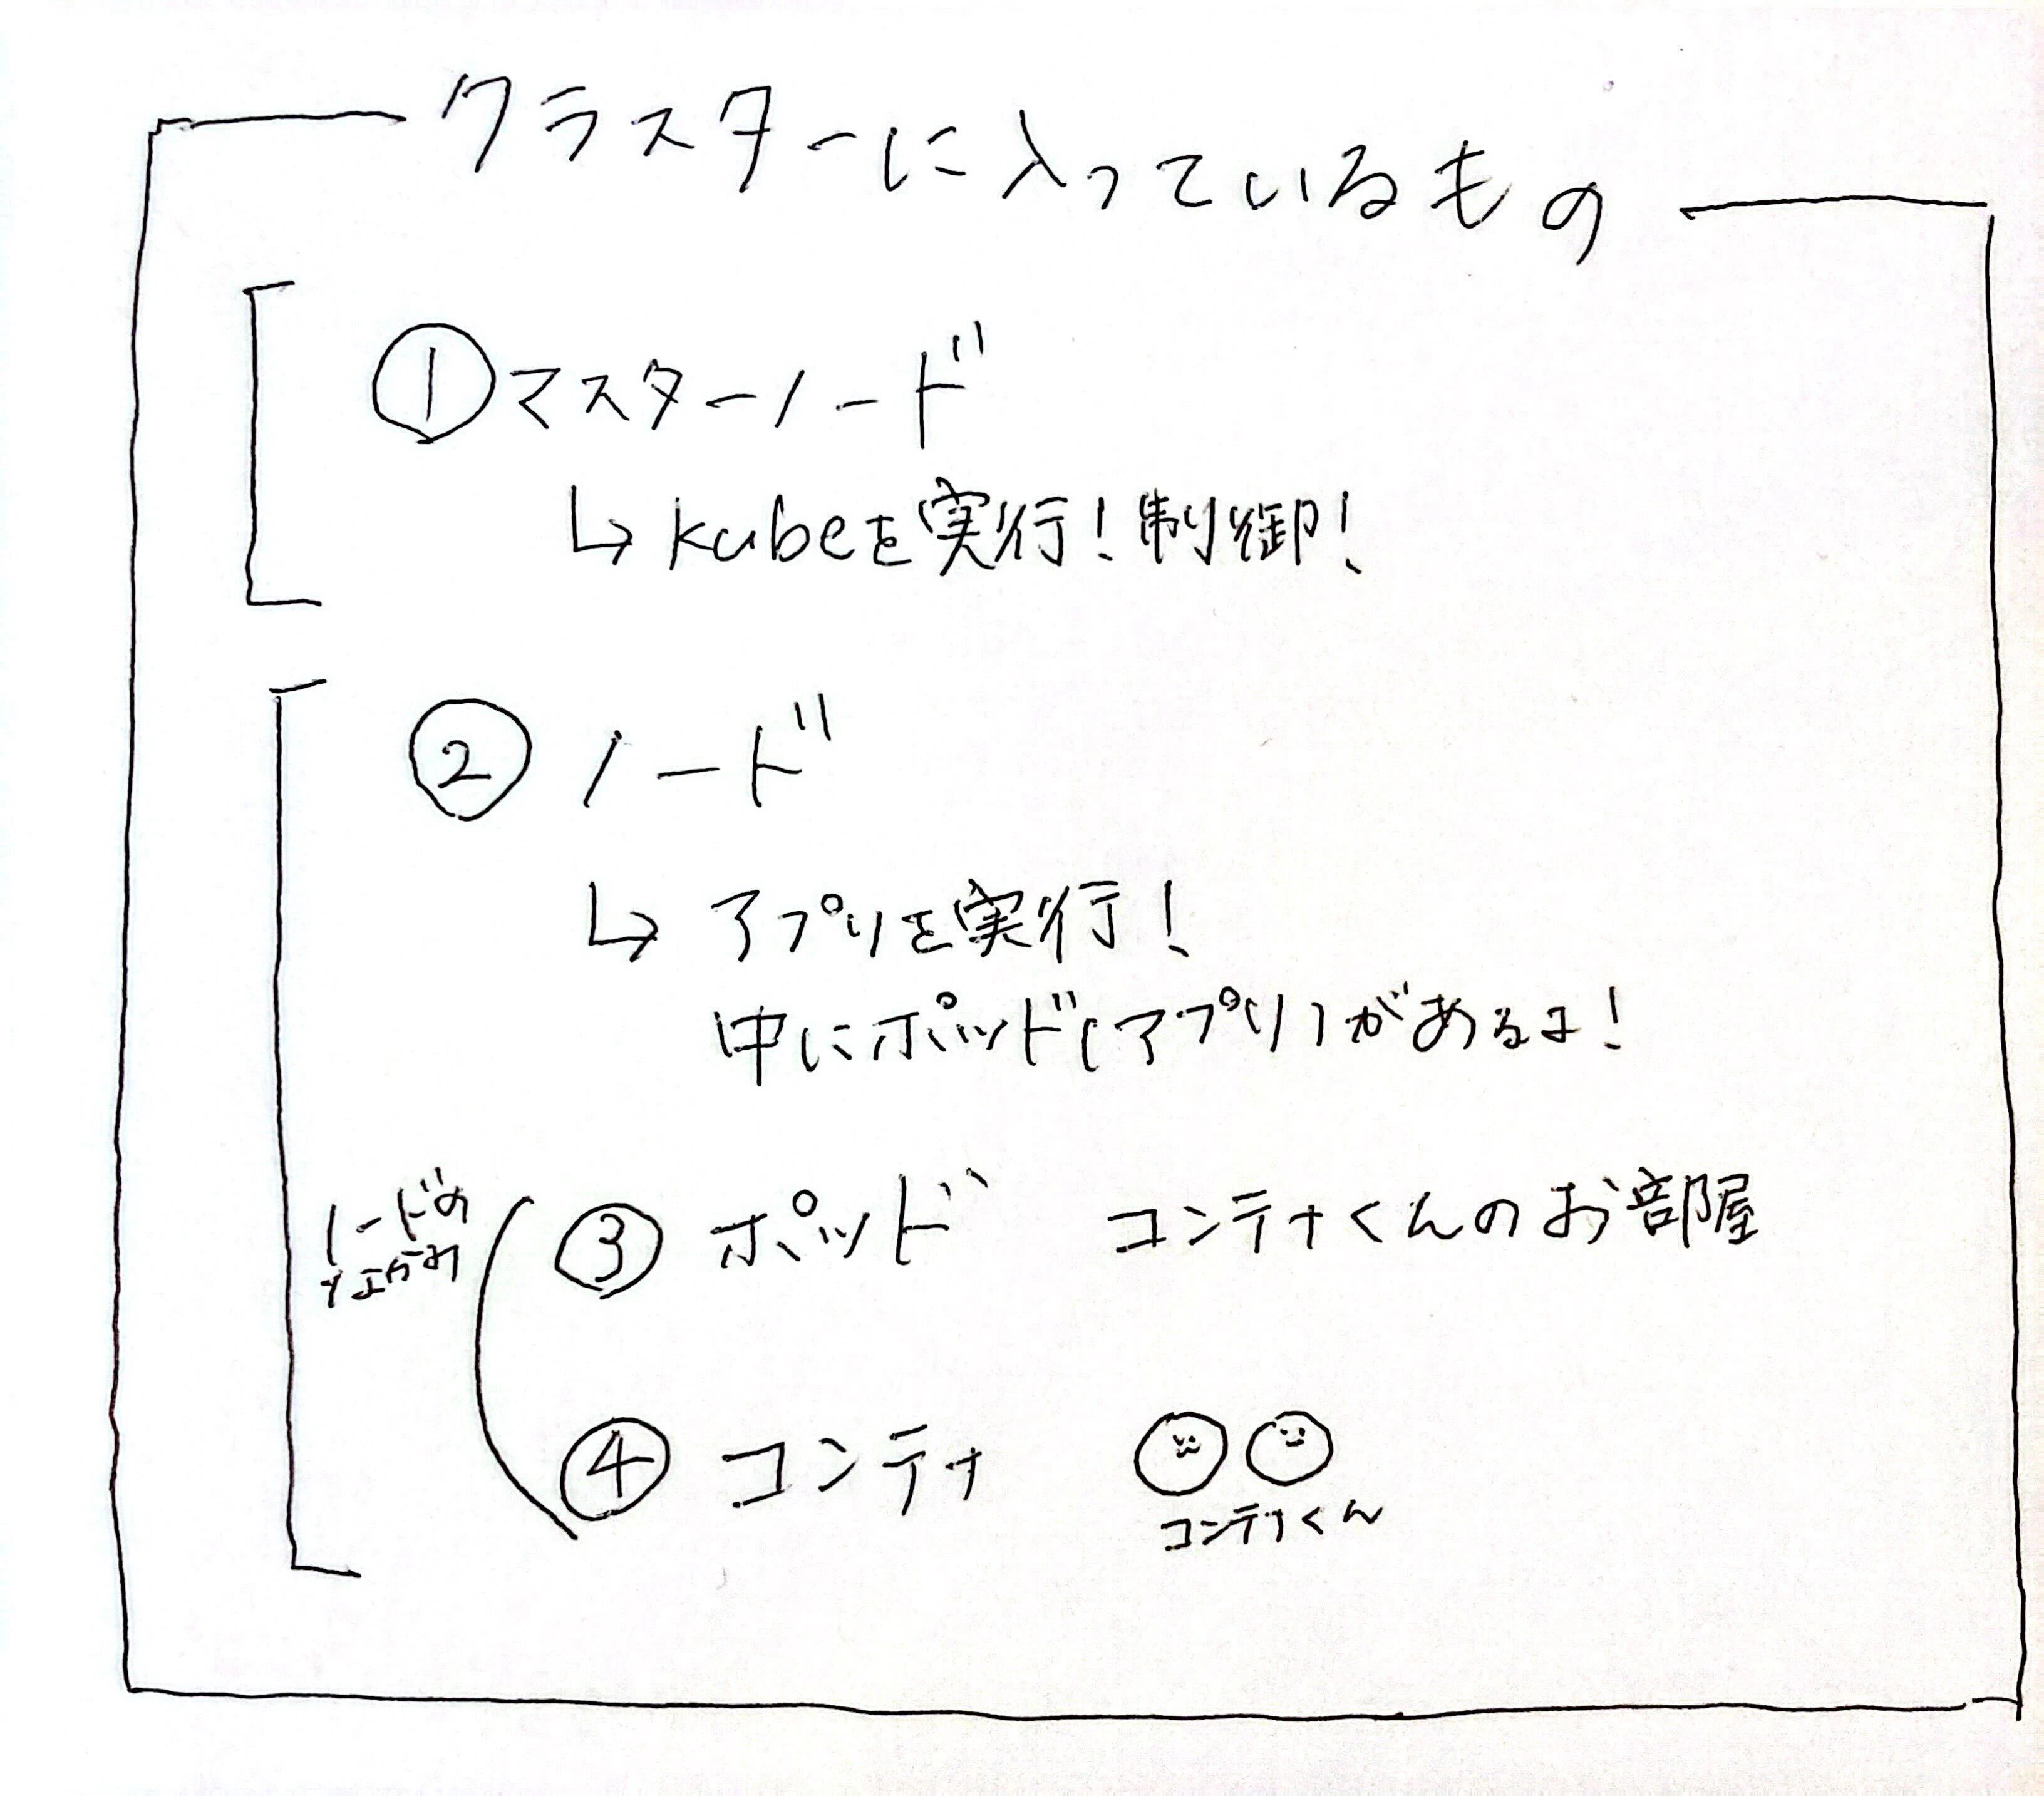 クラスターに入っているもの
①マスターノード
↳ kubeを実行!制御!
② ノード
↳ アプリを実行!
中にポッド(アプリ)があるよ!
ノードの
なかみ
③ ポッド コンテナくんのお部屋
④ コンテナ
コンテナくん